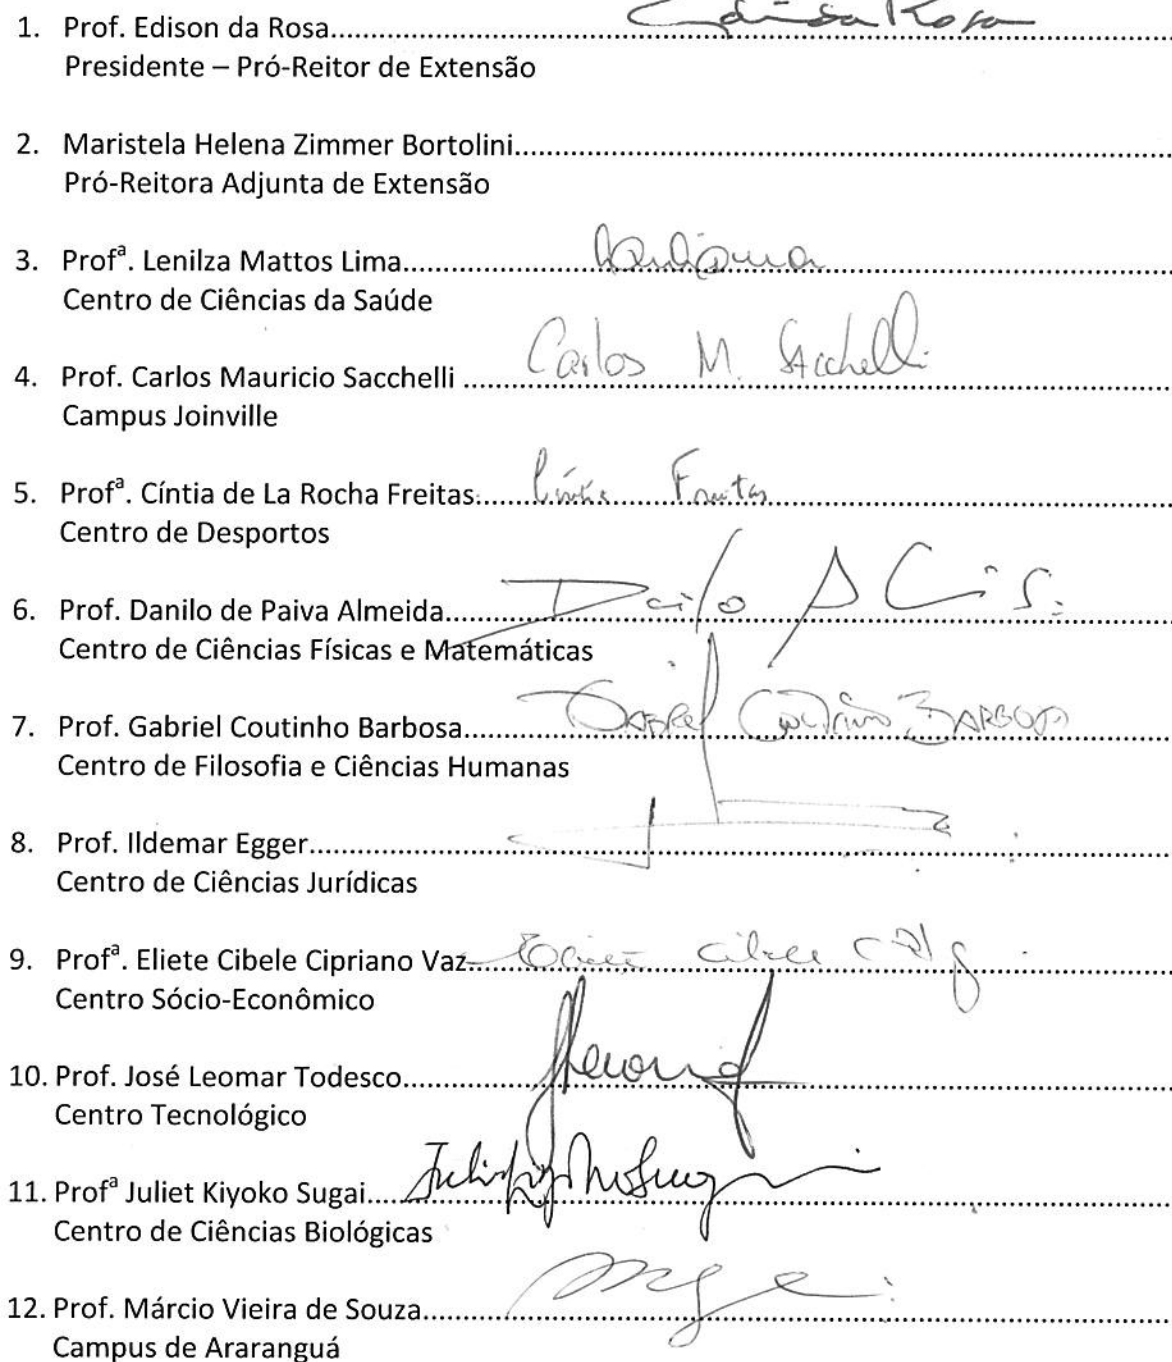 1. Prof. Edison da Rosa.......... Edison Rosa
Presidente – Pró-Reitor de Extensão
2. Maristela Helena Zimmer Bortolini..........
Pró-Reitora Adjunta de Extensão
3. Profª. Lenilza Mattos Lima..........
Centro de Ciências da Saúde
4. Prof. Carlos Mauricio Sacchelli .......... Carlos M. Sacchelli
Campus Joinville
5. Profª. Cíntia de La Rocha Freitas.......... Cíntia Freitas
Centro de Desportos
6. Prof. Danilo de Paiva Almeida..........
Centro de Ciências Físicas e Matemáticas
7. Prof. Gabriel Coutinho Barbosa.......... GABRIEL COUTINHO BARBOSA
Centro de Filosofia e Ciências Humanas
8. Prof. Ildemar Egger..........
Centro de Ciências Jurídicas
9. Profª. Eliete Cibele Cipriano Vaz.......... Eliete Cibele
Centro Sócio-Econômico
10. Prof. José Leomar Todesco..........
Centro Tecnológico
11. Profª Juliet Kiyoko Sugai..........
Centro de Ciências Biológicas
12. Prof. Márcio Vieira de Souza..........
Campus de Araranguá